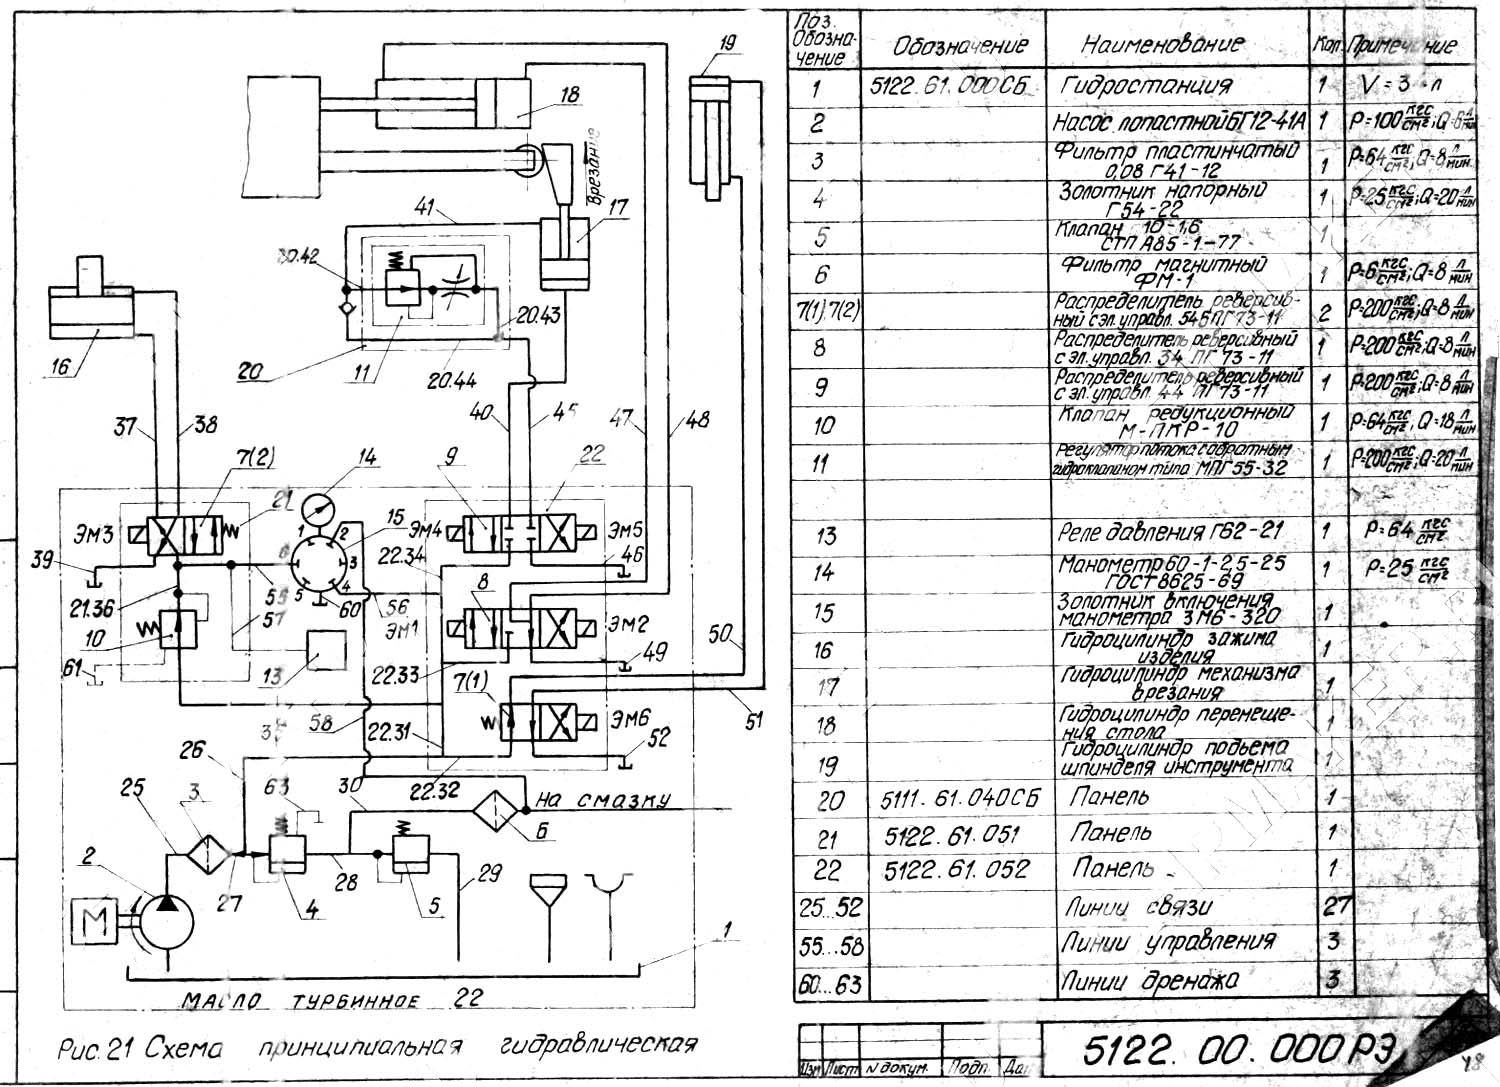 19
18
17
Врезание
41
20.42
20.43
20.44
11
20
16
37
38
40
45
47
48
7(2)
14
9
22
21
Эм3
15
Эм4
Эм5
1
2
3
4
5
39
22.34
46
8
21.36
55
60
56
57
Эм1
Эм2
10
50
61
13
22.33
49
7(1)
58
Эм6
51
22.31
52
26
30
22.32
63
25
3
На смазку
6
2
М
27
4
28
5
29
1
Масло турбинное 22
Рис. 21 Схема принципиальная гидравлическая
Поз. Обозначение Обозначение Наименование Кол. Примечание
1 5122.61.000СБ Гидростанция 1 V=3 л
2 Насос лопастной БГ12-41А 1 Р=100 кгс/см²; Q=6 л/мин
3 Фильтр пластинчатый
0,08 Г41-12 1 Р=64 кгс/см²; Q=8 л/мин
4 Золотник напорный
Г54-22 1 Р=25 кгс/см²; Q=20 л/мин
5 Клапан 10-1,6
СТП А85-1-77 1
6 Фильтр магнитный
ФМ-1 1 Р=6 кгс/см²; Q=8 л/мин
7(1),7(2) Распределитель реверсив-
ный с эл. управл. 54БПГ73-11 2 Р=200 кгс/см²; Q=8 л/мин
8 Распределитель реверсивный
с эл. управл. 34 ПГ 73-11 1 Р=200 кгс/см²; Q=8 л/мин
9 Распределитель реверсивный
с эл. управл. 44 ПГ73-11 1 Р=200 кгс/см²; Q=8 л/мин
10 Клапан редукционный
М-ПКР-10 1 Р=64 кгс/см²; Q=18 л/мин
11 Регулятор потока с обратным
гидроклапаном типа МПГ55-32 1 Р=200 кгс/см²; Q=20 л/мин
13 Реле давления Г62-21 1 Р=64 кгс/см²
14 Манометр 60-1-2,5-25
ГОСТ 8625-69 1 Р=25 кгс/см²
15 Золотник включения
манометра 3М6-320 1
16 Гидроцилиндр зажима
изделия 1
17 Гидроцилиндр механизма
врезания 1
18 Гидроцилиндр перемеще-
ния стола 1
19 Гидроцилиндр подьема
шпинделя инструмента 1
20 5111.61.040СБ Панель 1
21 5122.61.051 Панель 1
22 5122.61.052 Панель 1
25...52 Линии связи 27
55...58 Линии управления 3
60...63 Линии дренажа 3
Изм Лист N докум. Подп. Да
5122.00.000РЭ
48